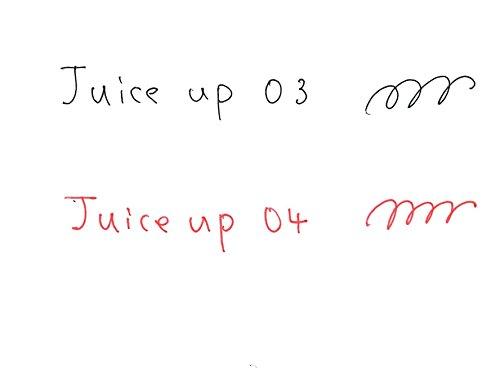 Juice up 03
Juice up 04